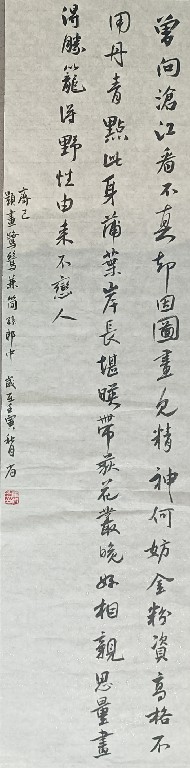 曾向滄江看不真却因圖畫見精神何妨金粉資高格不
用丹青點此身蒲葉岸長堪暎帶荻花叢晚好相親思量畫
得勝籠得野性由來不戀人
齊己
題畫鷺鷥兼簡孫郎中 歲在壬寅